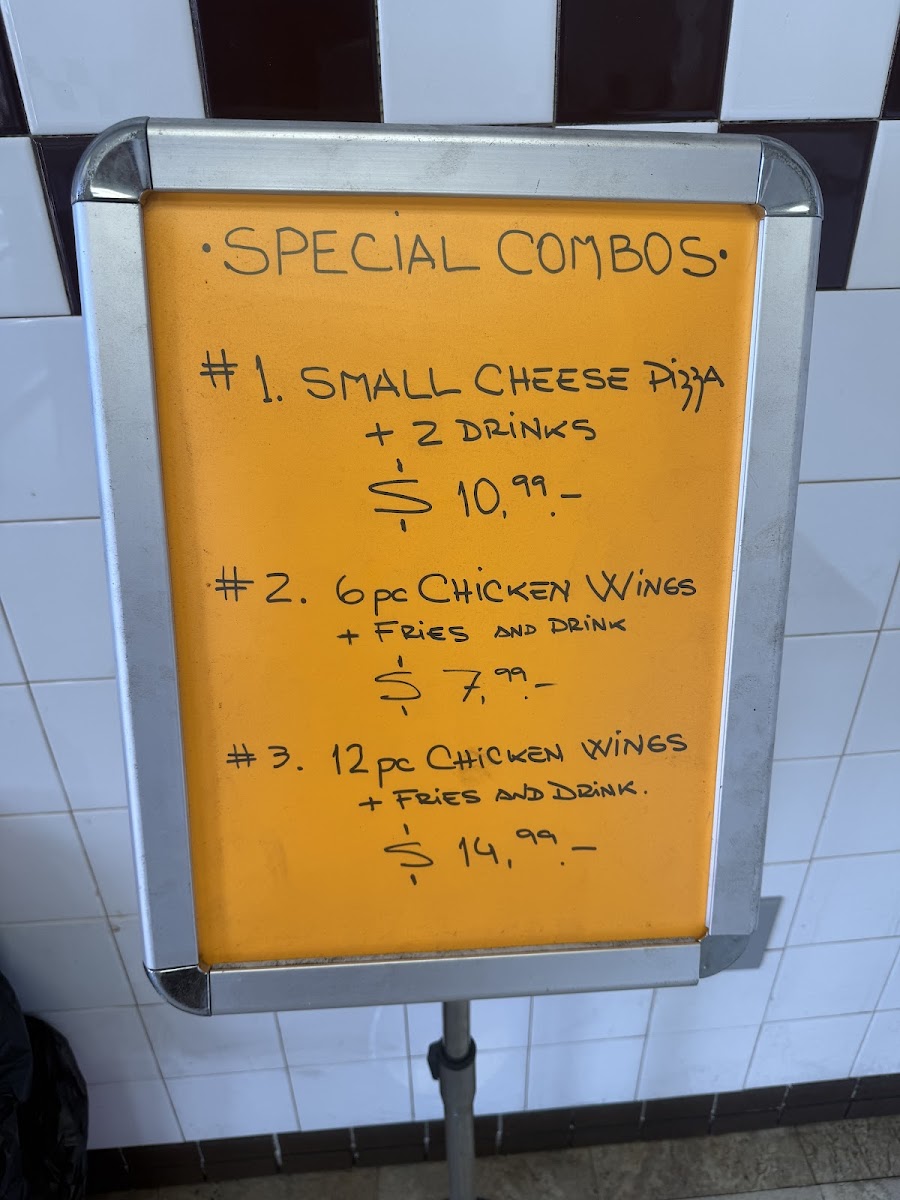 ·SPECIAL COMBOS·
#1. SMALL CHEESE PizzA
+ 2 DRiNKS
$ 10,99.-
#2. 6pc CHiCKEN WiNGS
+ FRiES AND DRiNK
$ 7,99.-
#3. 12pc CHiCKEN WiNGS
+ FRiES AND DRiNK.
$ 14,99.-